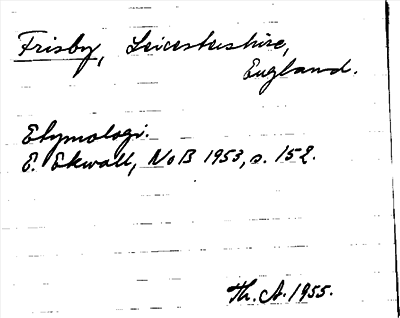 Frisby, Leicestershire,
England.
Etymologi.
E. Ekwall, NoB 1953, s. 152.
Th. A. 1955.